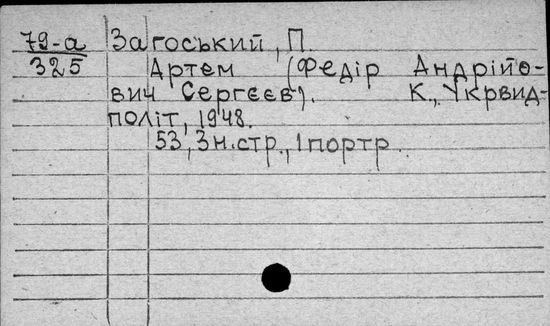 79-а Загоський, П.
325 Артем (Федір Андрійо-
вич Сергєєв). К., Укрвид-
політ, 1948.
53, 3 н. стр., 1 портр.